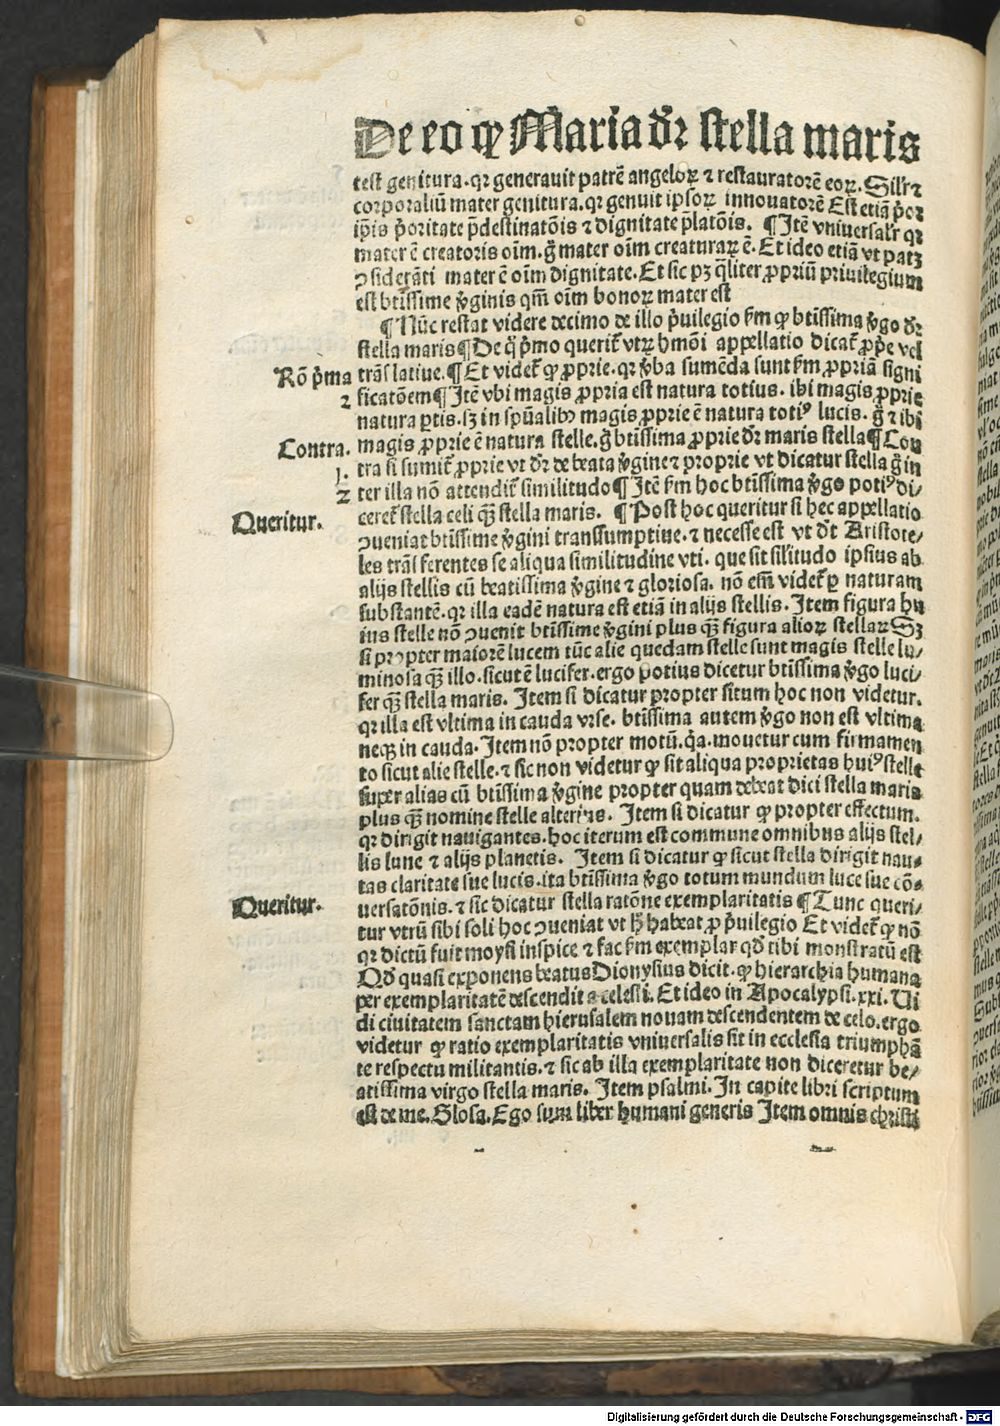 De eo qꝫ Maria dr̄ stella maris
test genitura. qr generauit patrē angeloꝝ ⁊ restauratorē eoꝝ. Silr̄ ⁊
corporaliū mater genitura. qr genuit ipsoꝝ innouatorē Est etiā p̄or
ip̄is p̄oritate p̄destinatōis ⁊ dignitate p̄latōis. ¶ Itē vniuersalr̄ qr
mater ē creatoris oīm. g̊ mater oīm creaturaꝝ ē. Et ideo etiā vt patꝫ
ꝯsiderāti mater ē oīm dignitate. Et sic pꝫ q̄liter ꝓpriū priuilegium
est btīssime v̊ginis qm̄ oīm bonoꝝ mater est
¶ Nūc restat videre decimo de illo p̄uilegio ẜm ꝙ btīssima v̊go dr̄
stella maris ¶ De q̊ p̄mo querit̄ vtꝝ hmōi appellatio dicat̄ ꝓpe vel
Rō p̄ma trāslatiue. ¶ Et videt̄ ꝙ ꝓprie. qr v̊ba sumēda sunt ẜm ꝓpriā signi
2 ficatōem ¶ Itē vbi magis ꝓpria est natura totius. ibi magis ꝓprie
natura ꝑtis. sꝫ in spūalibꝰ magis ꝓprie ē natura totiꝰ lucis. g̊ ⁊ ibi
Contra. magis ꝓprie ē natura stelle. g̊ btīssima ꝓprie dr̄ maris stella ¶ Con
1. tra si sumit̄ ꝓprie vt dr̄ de beata v̊gine ⁊ proprie vt dicatur stella g̊ in
2 ter illa nō attendit̄ similitudo ¶ Itē ẜm hoc btīssima v̊go potiꝰ di/
ceret̄ stella celi qꝫ̄ stella maris. ¶ Post hoc queritur si hec appellatio
Queritur.
ꝯueniat btīssime v̊gini transsumptiue. ⁊ necesse est vt dt̄ Aristote/
les trāsferentes se aliqua similitudine vti. que sit sil̄itudo ipsius ab
alijs stellis cū beatissima v̊gine ⁊ gloriosa. nō em̄ videt̄ ꝑ naturam
substantē. qr illa eadē natura est etiā in alijs stellis. Item figura hu
ius stelle nō ꝯuenit btīssime v̊gini plus qꝫ̄ figura alioꝝ stellaꝝ Sꝫ
si propter maiorē lucem tūc alie quedam stelle sunt magis stelle lu/
minosa qꝫ̄ illo. sicut ē lucifer. ergo potius dicetur btīssima v̊go luci/
fer qꝫ̄ stella maris. Item si dicatur propter situm hoc non videtur.
qr illa est vltima in cauda vrse. btīssima autem v̊go non est vltima
neqꝫ in cauda. Item nō propter motū. q̄a. mouetur cum firmamen
to sicut alie stelle. ⁊ sic non videtur ꝙ sit aliqua proprietas huiꝰ stelle
super alias cū btīssima v̊gine propter quam debeat dici stella maris
plus qꝫ̄ nomine stelle alterius. Item si dicatur ꝙ propter effectum.
qr dirigit nauigantes. hoc iterum est commune omnibus alijs stel/
lis lune ⁊ alijs planetis. Item si dicatur ꝙ sicut stella dirigit nau/
tas claritate sue lucis. ita btīssima v̊go totum mundum luce sue cō/
Queritur. uersatōnis. ⁊ sic dicatur stella ratōne exemplaritatis ¶ Tunc queri/
tur vtrū sibi soli hoc ꝯueniat vt h̄ habeat ꝓ p̄uilegio Et videt̄ ꝙ nō
qr dictū fuit moysi inspice ⁊ fac ẜm exemplar qd̄ tibi monstratū est
Qd̄ quasi exponens beatus Dionysius dicit. ꝙ hierarchia humana
per exemplaritatē descendit a celesti. Et ideo in Apocalypsi. xxi. Ui
di ciuitatem sanctam hierusalem nouam descendentem de celo. ergo
videtur ꝙ ratio exemplaritatis vniuersalis sit in ecclesia triumphā
te respectu militantis. ⁊ sic ab illa exemplaritate non diceretur be/
atissima virgo stella maris. Item psalmi. In capite libri scriptum
est de me. Glosa. Ego sum liber humani generis Item omnis christi
Digitalisierung gefördert durch die Deutsche Forschungsgemeinschaft - DFG